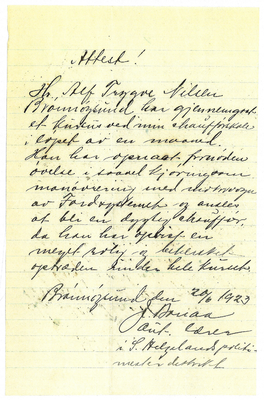 Attest!
Hr. Alf Trygve Nilsen
Brønnøysund har gjennemgaat
et kursus ved min chaufførskole
i løpet av en maaned.
Han har opnaad, fornøden
øvelse i saavel kjøring som
manøvrering med motorvogn
av Fordsystemet og ansees
at bli en dygtig chauffør,
da han har utvist en
meget rolig og behersket
optræden under hele kurset.
Brønnøysund den 20/6 1923
aut. lærer
i S. Helgelands politi-
mester distrikt